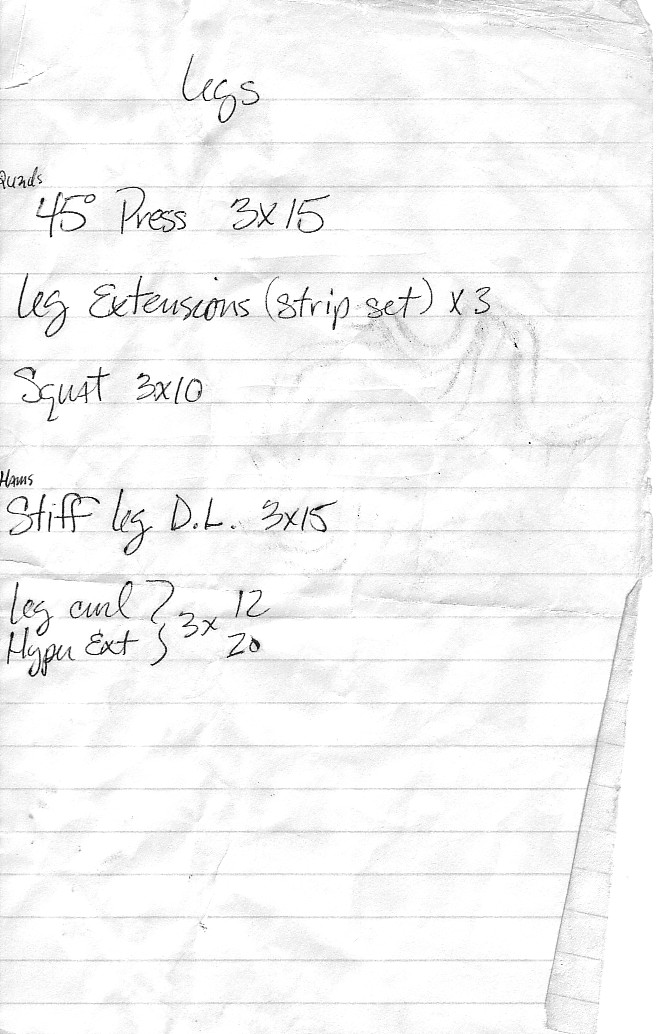 Legs
Quads
45° Press 3x15
Leg Extensions (strip set) x 3
Squat 3x10
Hams
Stiff leg D.L. 3x15
Leg curl } 3x 12
Hyper Ext } 20